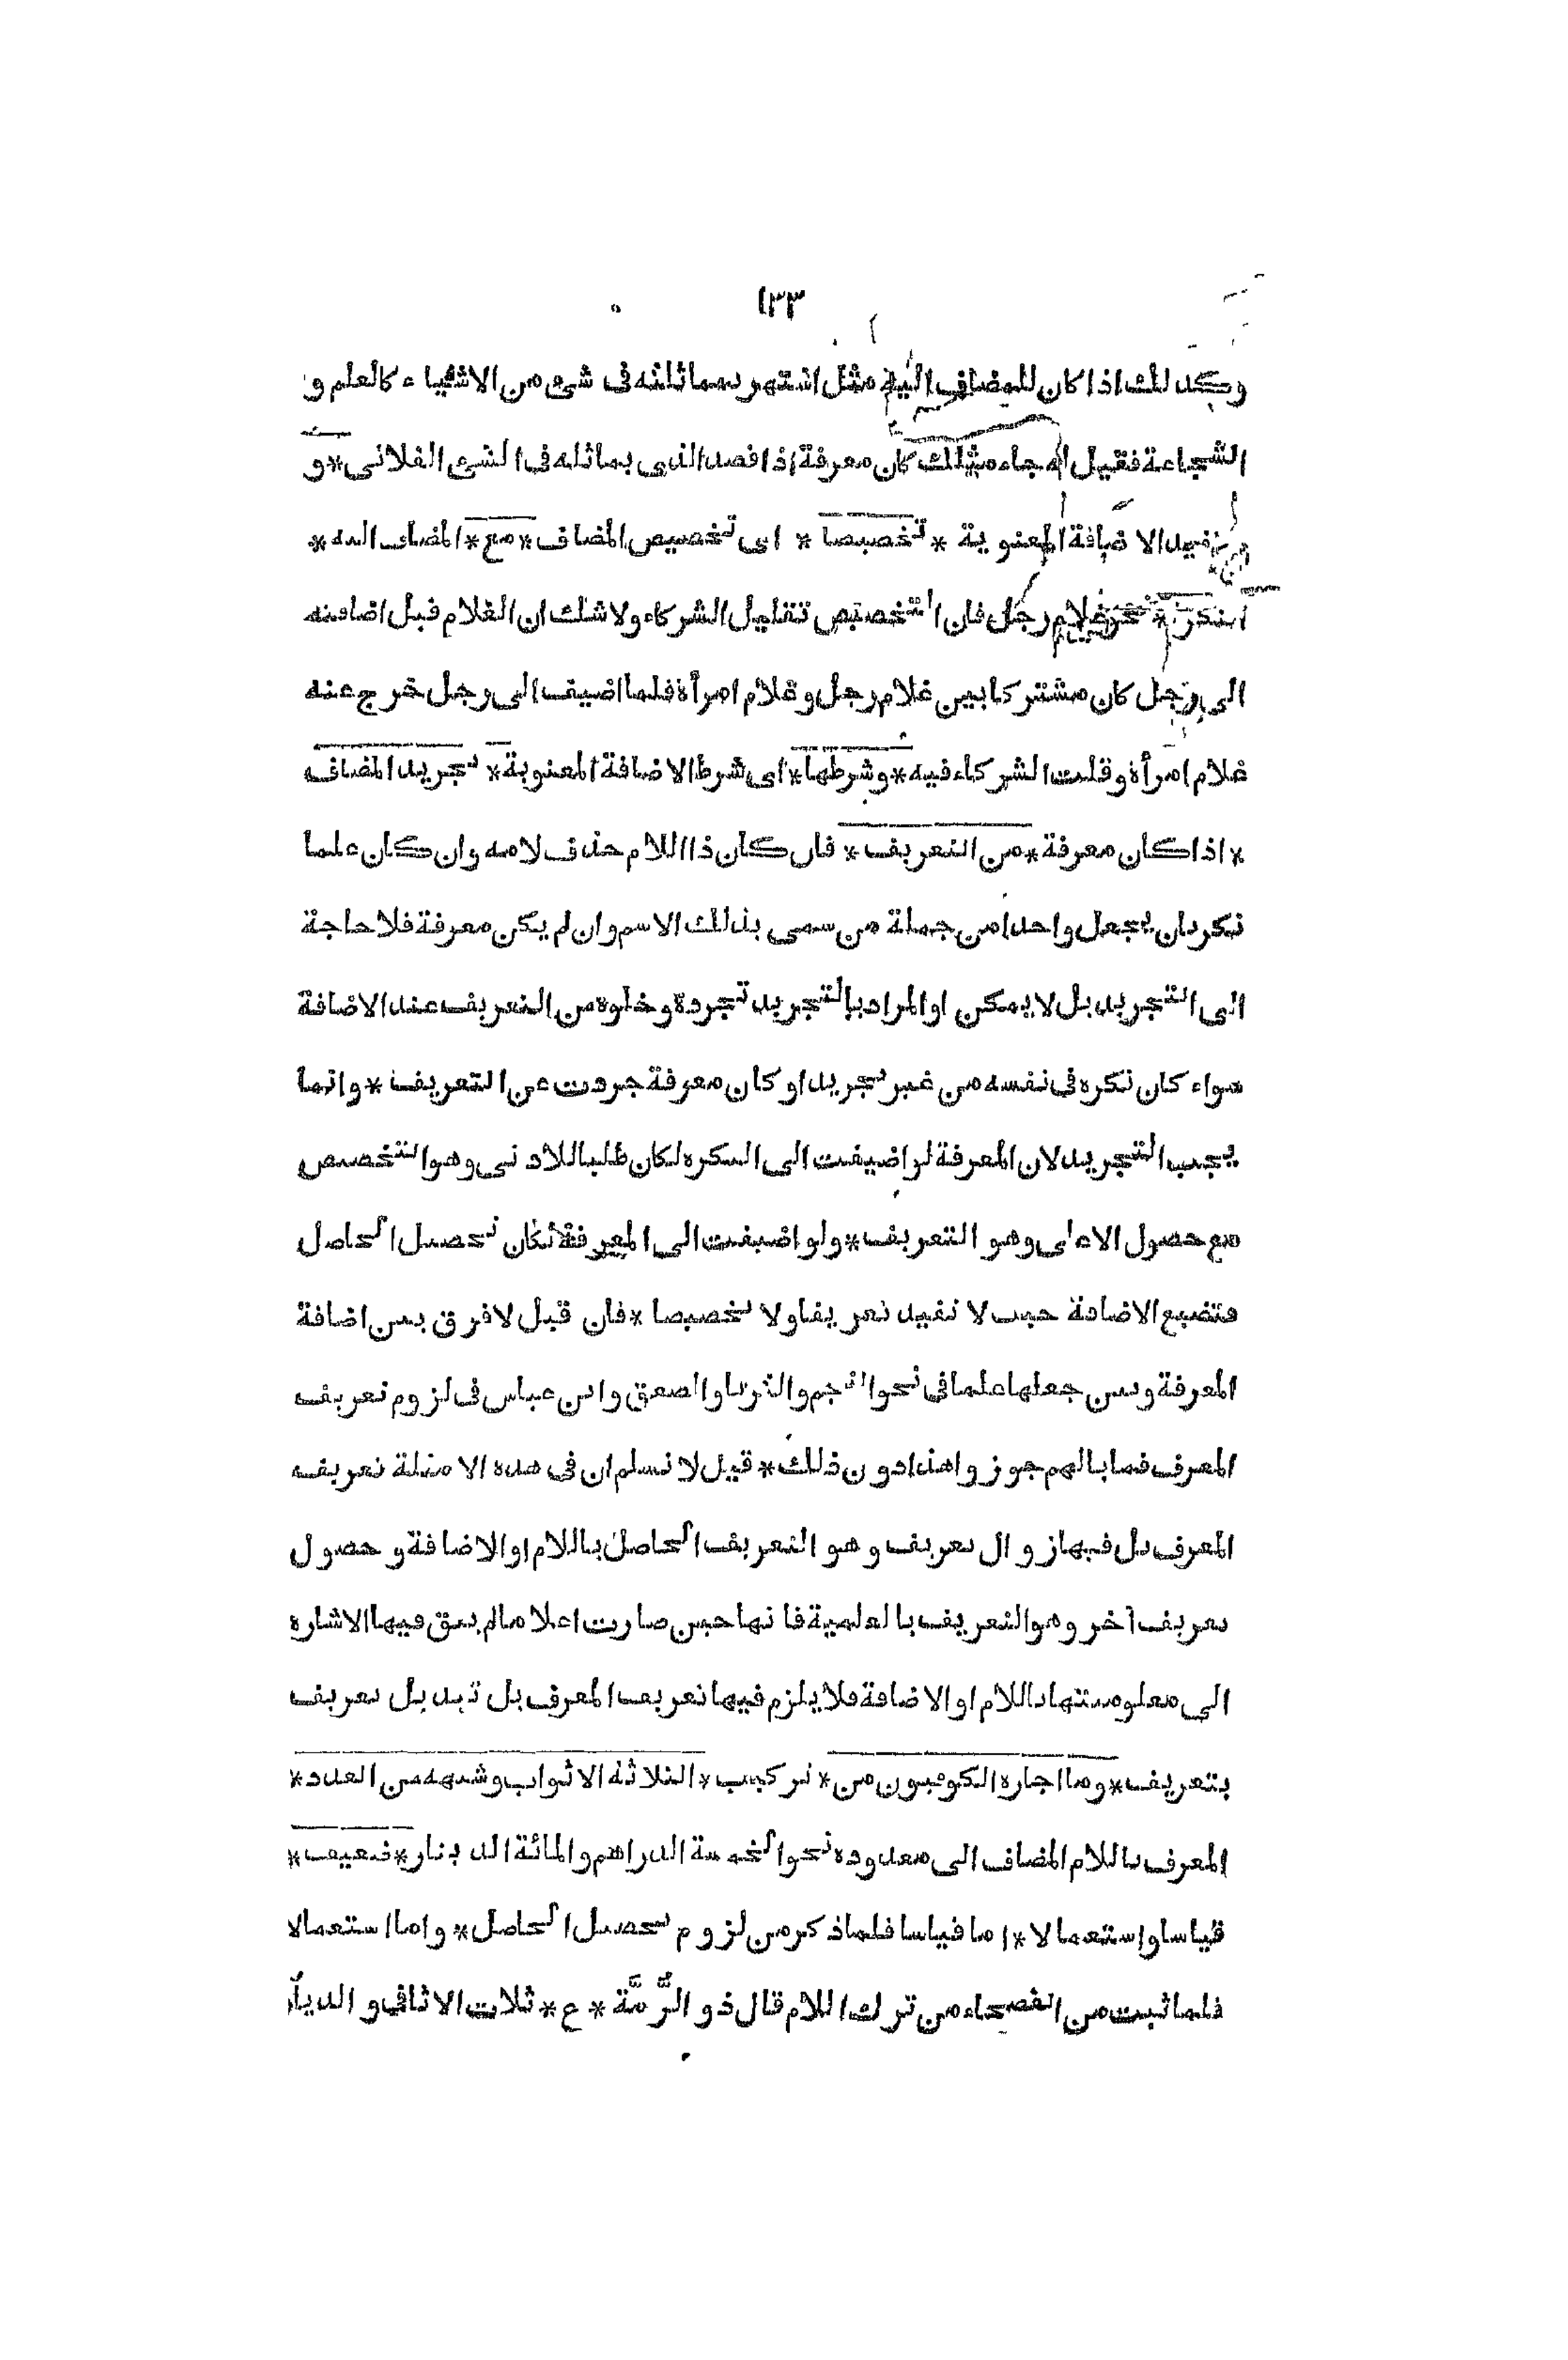 ١٣٣
وكذلك اذا كان للمضاف اليه مثل اشتهر بمماثلته فى شئ من الاشياء كالعلم و
الشجاعة فقيل له جاء مثلك كان معرفة اذا قصد الذى يماثله فى الشئ الفلانى * و
تفيد الاضافة المعنوية * تخصيصا * اى تخصيص المضاف * مع * المضاف اليه *
النكرة * نحو غلام رجل فان التخصيص تقليل الشركاء ولا شك ان الغلام قبل اضافته
الى رجل كان مشتركا بين غلام رجل وغلام امرأة فلما اضيف الى رجل خرج عنه
غلام امرأة وقلت الشركاء فيه * وشرطها * اى شرط الاضافة المعنوية * تجريد المضاف
* اذا كان معرفة * من التعريف * فان كان ذا اللام حذف لامه وان كان علما
نكر بان يجعل واحدا من جملة من سمى بذلك الاسم وان لم يكن معرفة فلا حاجة
الى التجريد بل لا يمكن او المراد بالتجريد تجرده وخلوه من التعريف عند الاضافة
سواء كان نكرة فى نفسه من غير تجريد او كان معرفة جردت عن التعريف * وانما
يجب التجريد لان المعرفة لو اضيفت الى النكرة لكان طلبا للادنى وهو التخصيص
مع حصول الاعلى وهو التعريف * ولو اضيفت الى المعرفة لكان تحصيل الحاصل
فتضيع الاضافة حيث لا تفيد تعريفا ولا تخصيصا * فان قيل لا فرق بين اضافة
المعرفة وبين جعلها علما فى نحو النجم والثريا والصعق وابن عباس فى لزوم تعريف
المعرف فما بالهم جوزوا هذا دون ذلك * قيل لا نسلم ان فى هذه الامثلة تعريف
المعرف بل فيها زوال تعريف وهو التعريف الحاصل باللام او الاضافة وحصول
تعريف آخر وهو التعريف بالعلمية فانها حين صارت اعلاما لم يبق فيها الاشارة
الى معلوميتها باللام او الاضافة فلا يلزم فيها تعريف المعرف بل تبديل تعريف
بتعريف * وما اجازه الكوفيون من * تركيب * الثلاثة الاثواب وشبهه من العدد *
المعرف باللام المضاف الى معدوده نحو الخمسة الدراهم والمائة الدينار * ضعيف *
قياسا واستعمالا * اما قياسا فلما ذكر من لزوم تحصيل الحاصل * واما استعمالا
فلما ثبت من الفصحاء من ترك اللام قال ذو الرُّمَّة * ع * ثلاث الاثافى و الديار